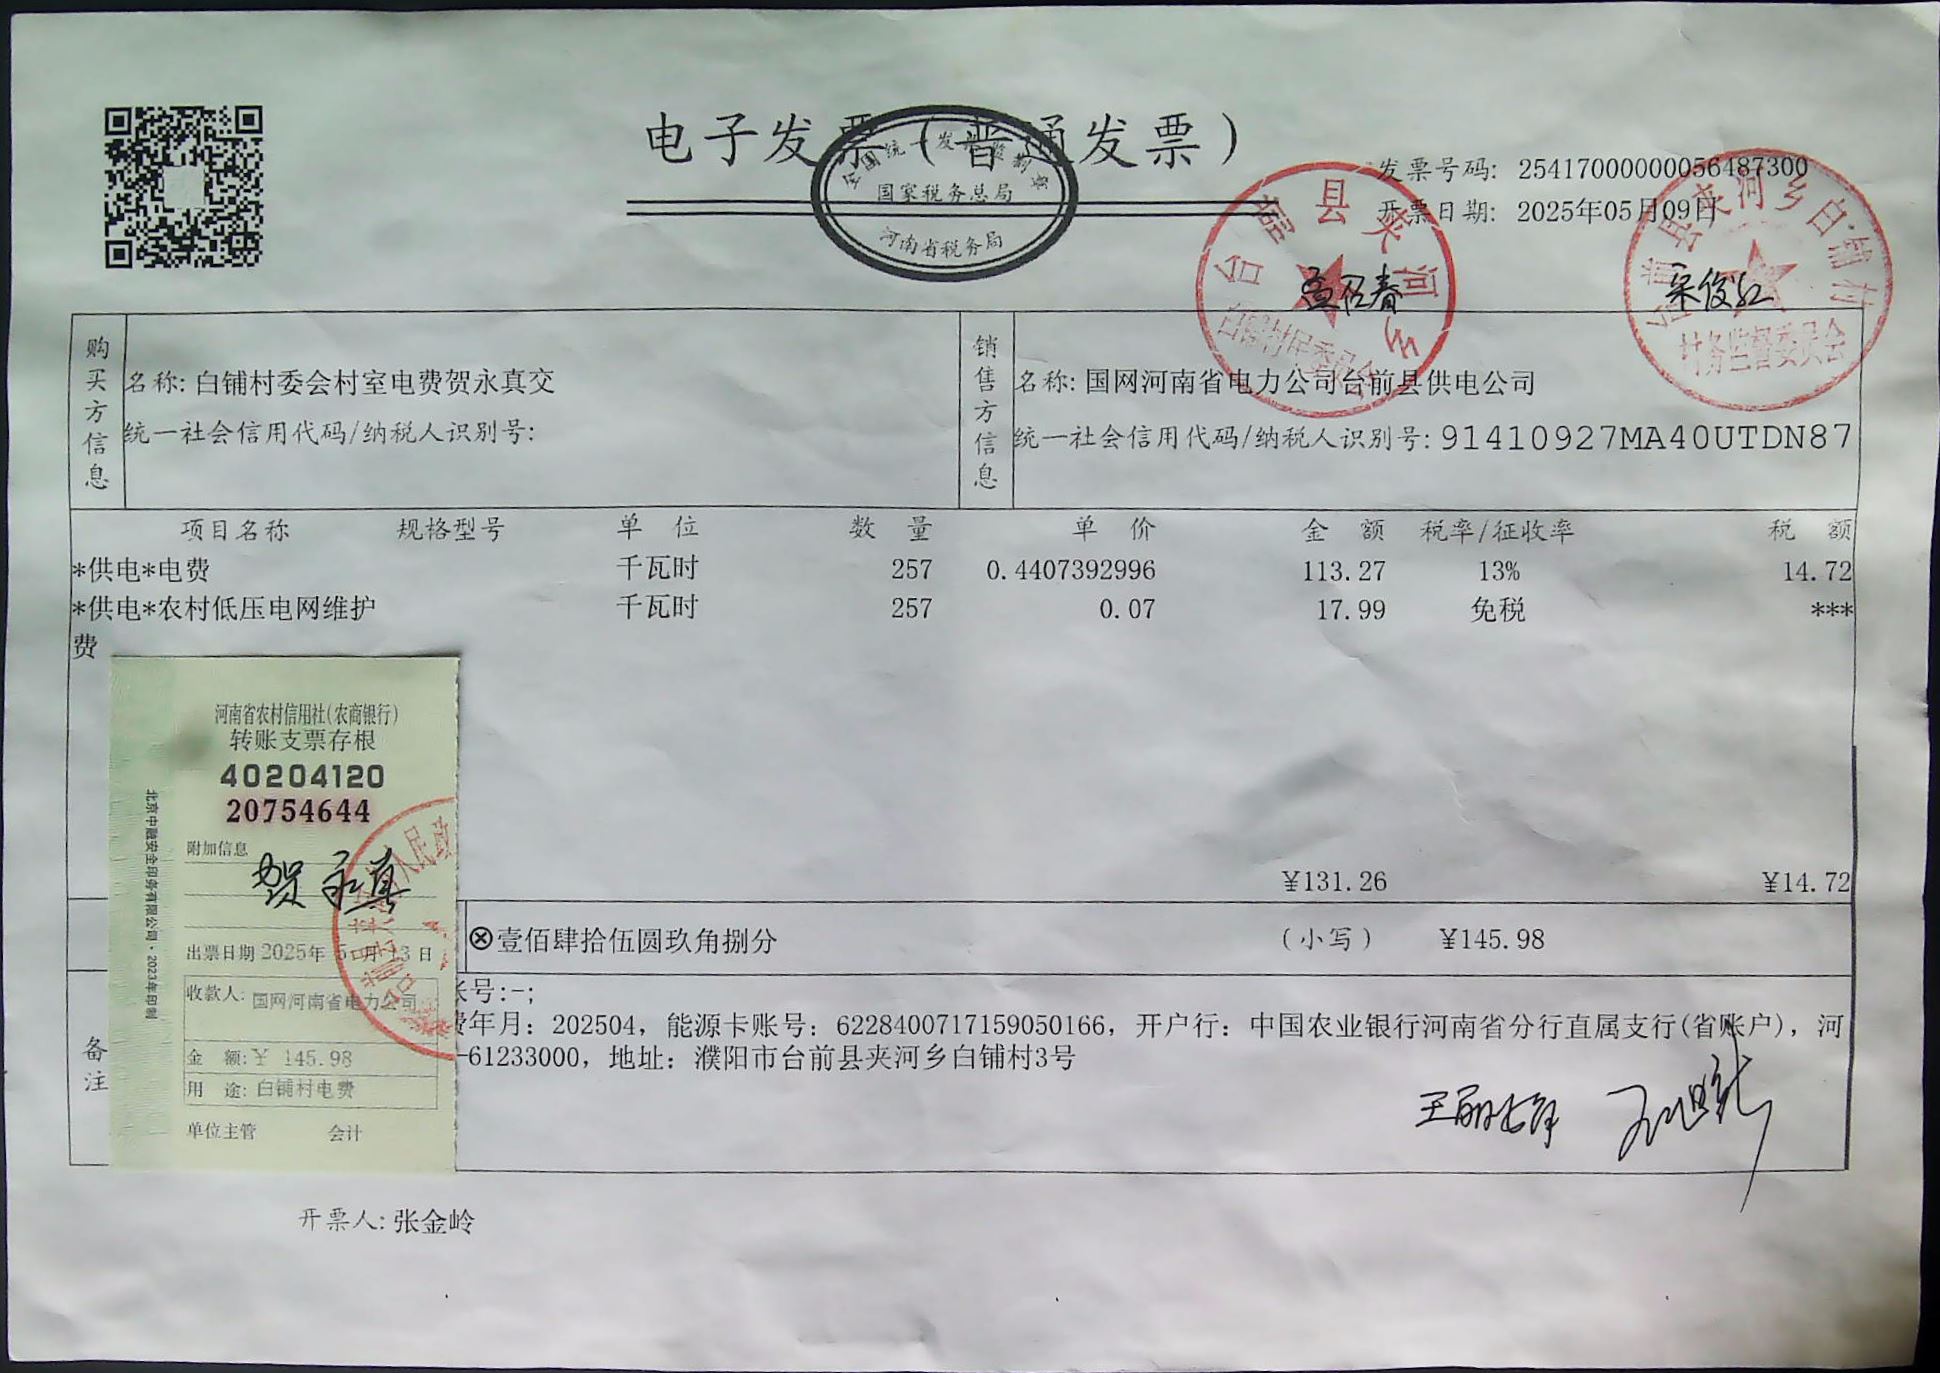 电子发票（普通发票）
全国统一发票监制章
国家税务总局
河南省税务局
发票号码: 25417000000056487300
开票日期: 2025年05月09日
台前县夹河乡
白铺村民委员会
台前县夹河乡白铺村
村务监督委员会
宋俊红
购买方信息
名称: 白铺村委会村室电费贺永真交
统一社会信用代码/纳税人识别号:
销售方信息
名称: 国网河南省电力公司台前县供电公司
统一社会信用代码/纳税人识别号: 91410927MA40UTDN87
项目名称 规格型号 单 位 数 量 单 价 金 额 税率/征收率 税 额
*供电*电费 千瓦时 257 0.4407392996 113.27 13% 14.72
*供电*农村低压电网维护 千瓦时 257 0.07 17.99 免税 ***
费
¥131.26 ¥14.72
⊗壹佰肆拾伍圆玖角捌分 (小写) ¥145.98
备注
长号:-;
费年月: 202504, 能源卡账号: 6228400717159050166, 开户行: 中国农业银行河南省分行直属支行(省账户), 河
-61233000, 地址: 濮阳市台前县夹河乡白铺村3号
河南省农村信用社(农商银行)
转账支票存根
40204120
20754644
附加信息
贺永真
出票日期 2025年 5月 13日
收款人: 国网河南省电力公司
金 额: ¥ 145.98
用 途: 白铺村电费
单位主管 会计
北京中融安全印务有限公司·2023年印制
人民政
开票人: 张金岭